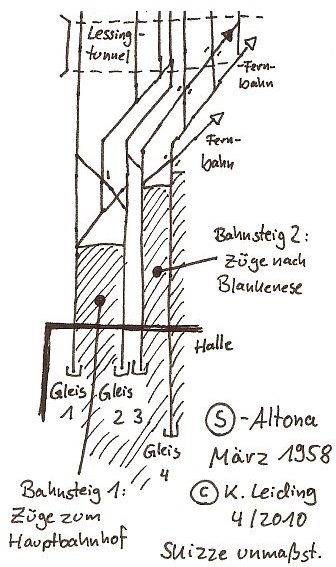 Lessing-
tunnel
Fern-
bahn
Fern-
bahn
Bahnsteig 2:
Züge nach
Blankenese
Halle
Gleis
1
Gleis
2 3
Gleis
4
Bahnsteig 1:
Züge zum
Hauptbahnhof
S-Altona
März 1958
© K. Leiding
4/2010
Skizze unmaßst.